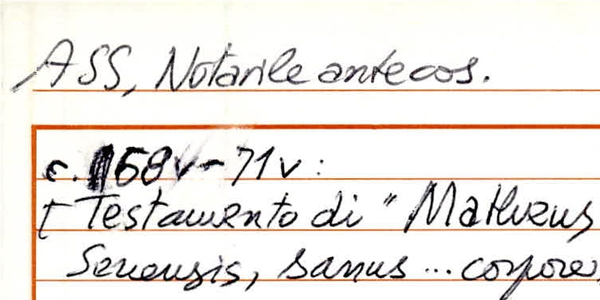 ASS, Notarile antecos.
c. 68v-71v:
[Testamento di "Matheus
Senensis, sanus ... corpore,